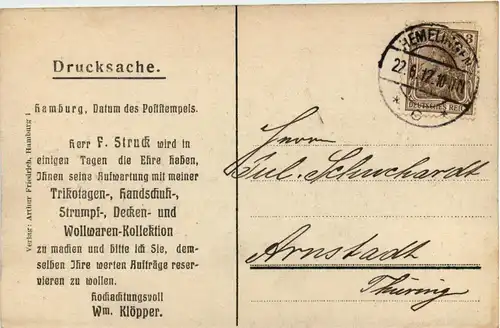 Drucksache.
Hamburg, Datum des Poststempels.
Herr F. Struck wird in
einigen Tagen die Ehre haben,
Ihnen seine Aufwartung mit meiner
Trikotagen-, Handschuh-,
Strumpf-, Decken- und
Wollwaren-Kollektion
zu machen und bitte ich Sie, dem-
selben Ihre werten Aufträge reser-
vieren zu wollen.
Hochachtungsvoll
Wm. Klöpper.
Verlag: Arthur Friedrich, Hamburg 1
HEMELINGEN
22.6.12.10
3
DEUTSCHES REICH
Herrn
Jul. Schuchardt
Arnstadt
Thüring